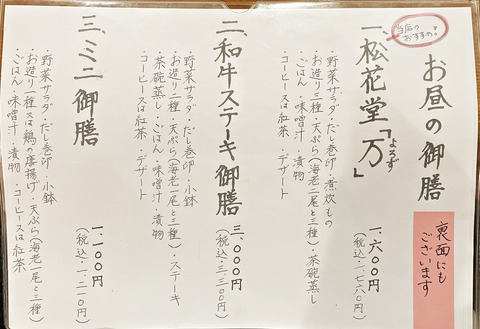 お昼の御膳
裏面にも
ございます
当店の
おすすめ!
一、松花堂「万」
よろず
一、六〇〇円
(税込・一、七六〇円)
・野菜サラダ・だし巻卵・煮炊もの
・お造り三種・天ぷら(海老二尾と三種)・茶碗蒸し
・ごはん・味噌汁・漬物
・コーヒー又は紅茶・デザート
二、和牛ステーキ御膳
三、〇〇〇円
(税込・三、三〇〇円)
・野菜サラダ・だし巻卵・小鉢
・お造り二種・天ぷら(海老一尾と三種)・ステーキ
・茶碗蒸し・ごはん・味噌汁・漬物
・コーヒー又は紅茶・デザート
三、ミニ御膳
一、一〇〇円
(税込・一、二一〇円)
・野菜サラダ・だし巻卵・小鉢
・お造り二種又は鶏の唐揚げ・天ぷら(海老一尾と三種)
・ごはん・味噌汁・漬物・コーヒー又は紅茶